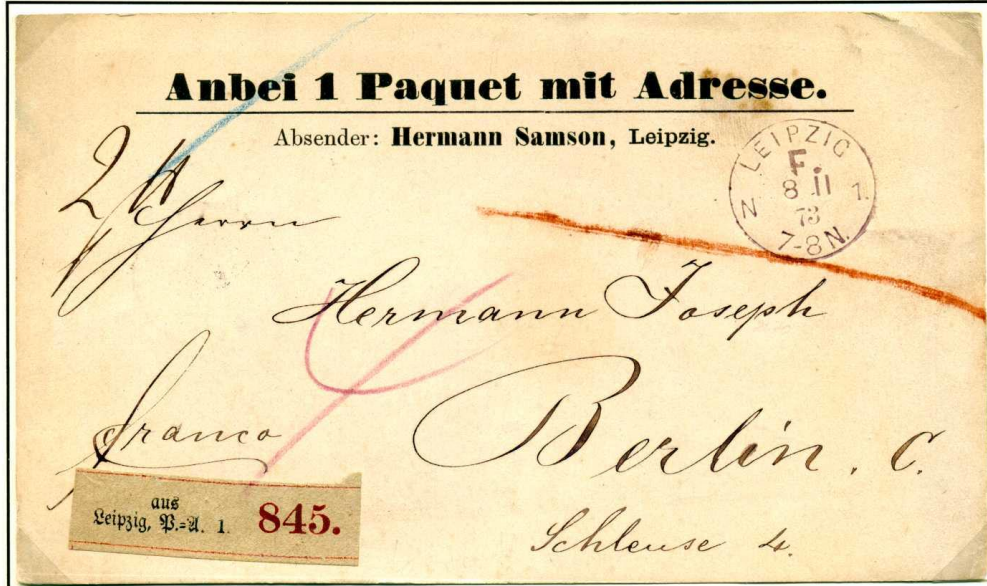 Anbei 1 Paquet mit Adresse.
Absender: Hermann Samson, Leipzig.
LEIPZIG
F.
8 II
73
7-8 N.
N 1.
Herrn
Hermann Joseph
Berlin. C.
Schleuse 4.
franco
aus
Leipzig, P.-A. 1. 845.